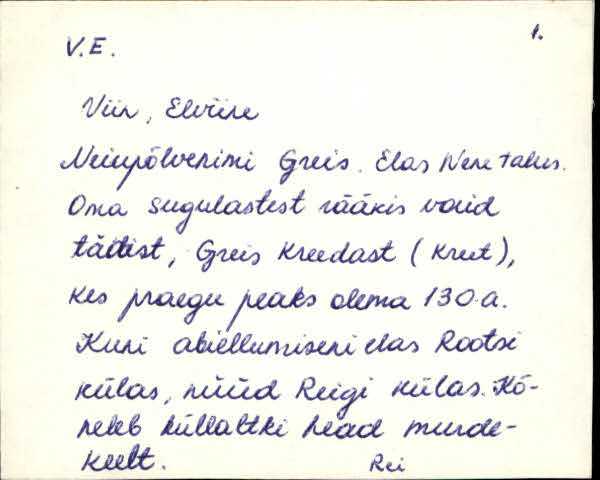 1.
V.E.
Viir, Elviine
Neiupõlvenimi Greis. Elas Nere talus.
Oma sugulastest rääkis vaid
tädist, Greis Kreedast (Kreet),
kes praegu peaks olema 130.a.
Kuni abiellumiseni elas Rootsi
külas, nüüd Reigi külas. Kõ-
neleb küllaltki head murde-
keelt.
Rei